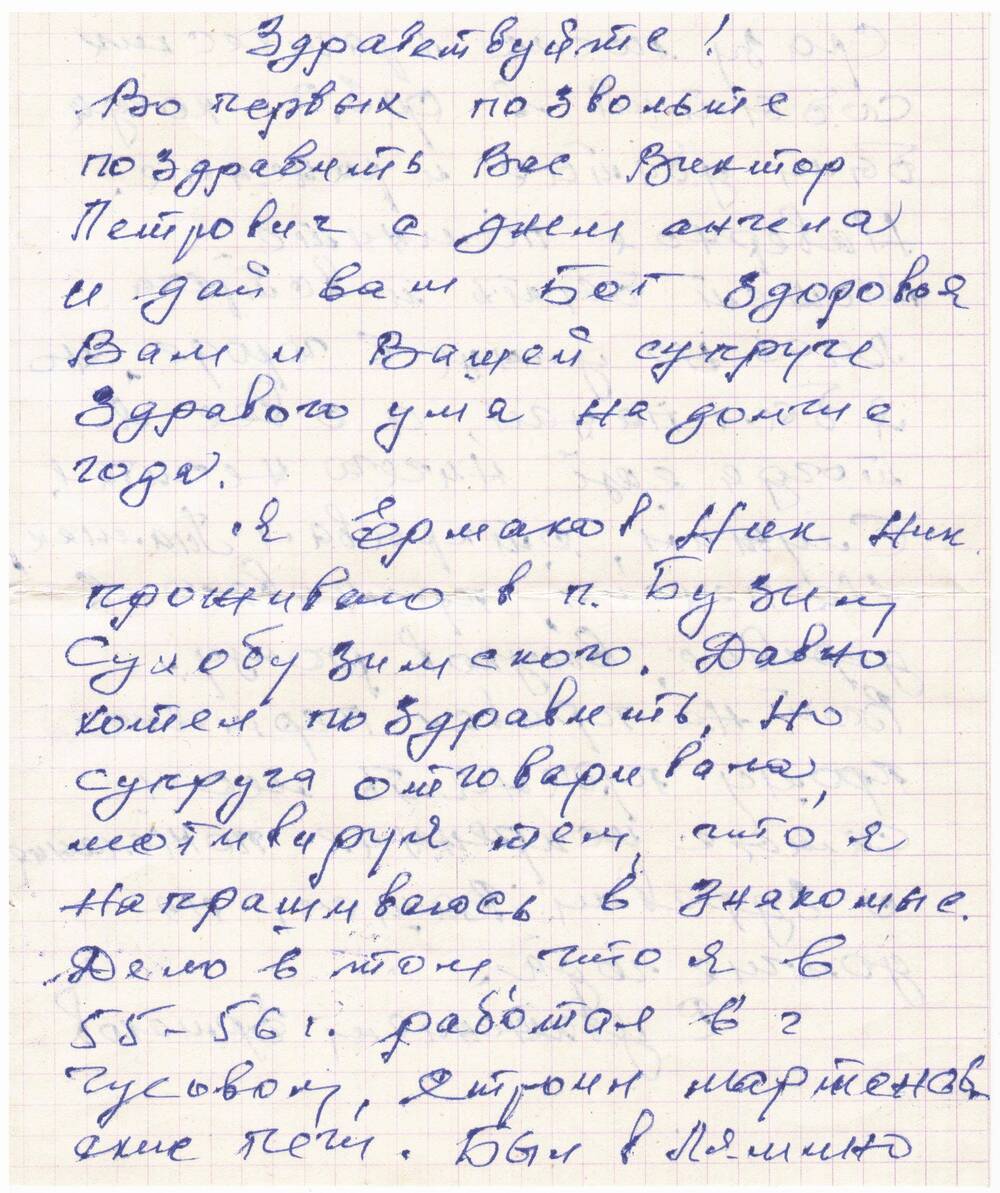 Здравствуйте!
Во первых позвольте
поздравить Вас Виктор
Петрович с днем ангела
и дай вам Бог здоровья
Вам и Вашей супруге
Здравого ума на долгие
года.
Я Ермаков Ник Ник
проживаю в п. Бузим
Сухобузимского. Давно
хотел поздравить, но
супруга отговаривала,
мотивируя тем, что я
напрашиваюсь в знакомые.
Дело в том что я в
55-56 г. работал в г
Чусовом, строил мартенов
ские печи. Был в Лямино